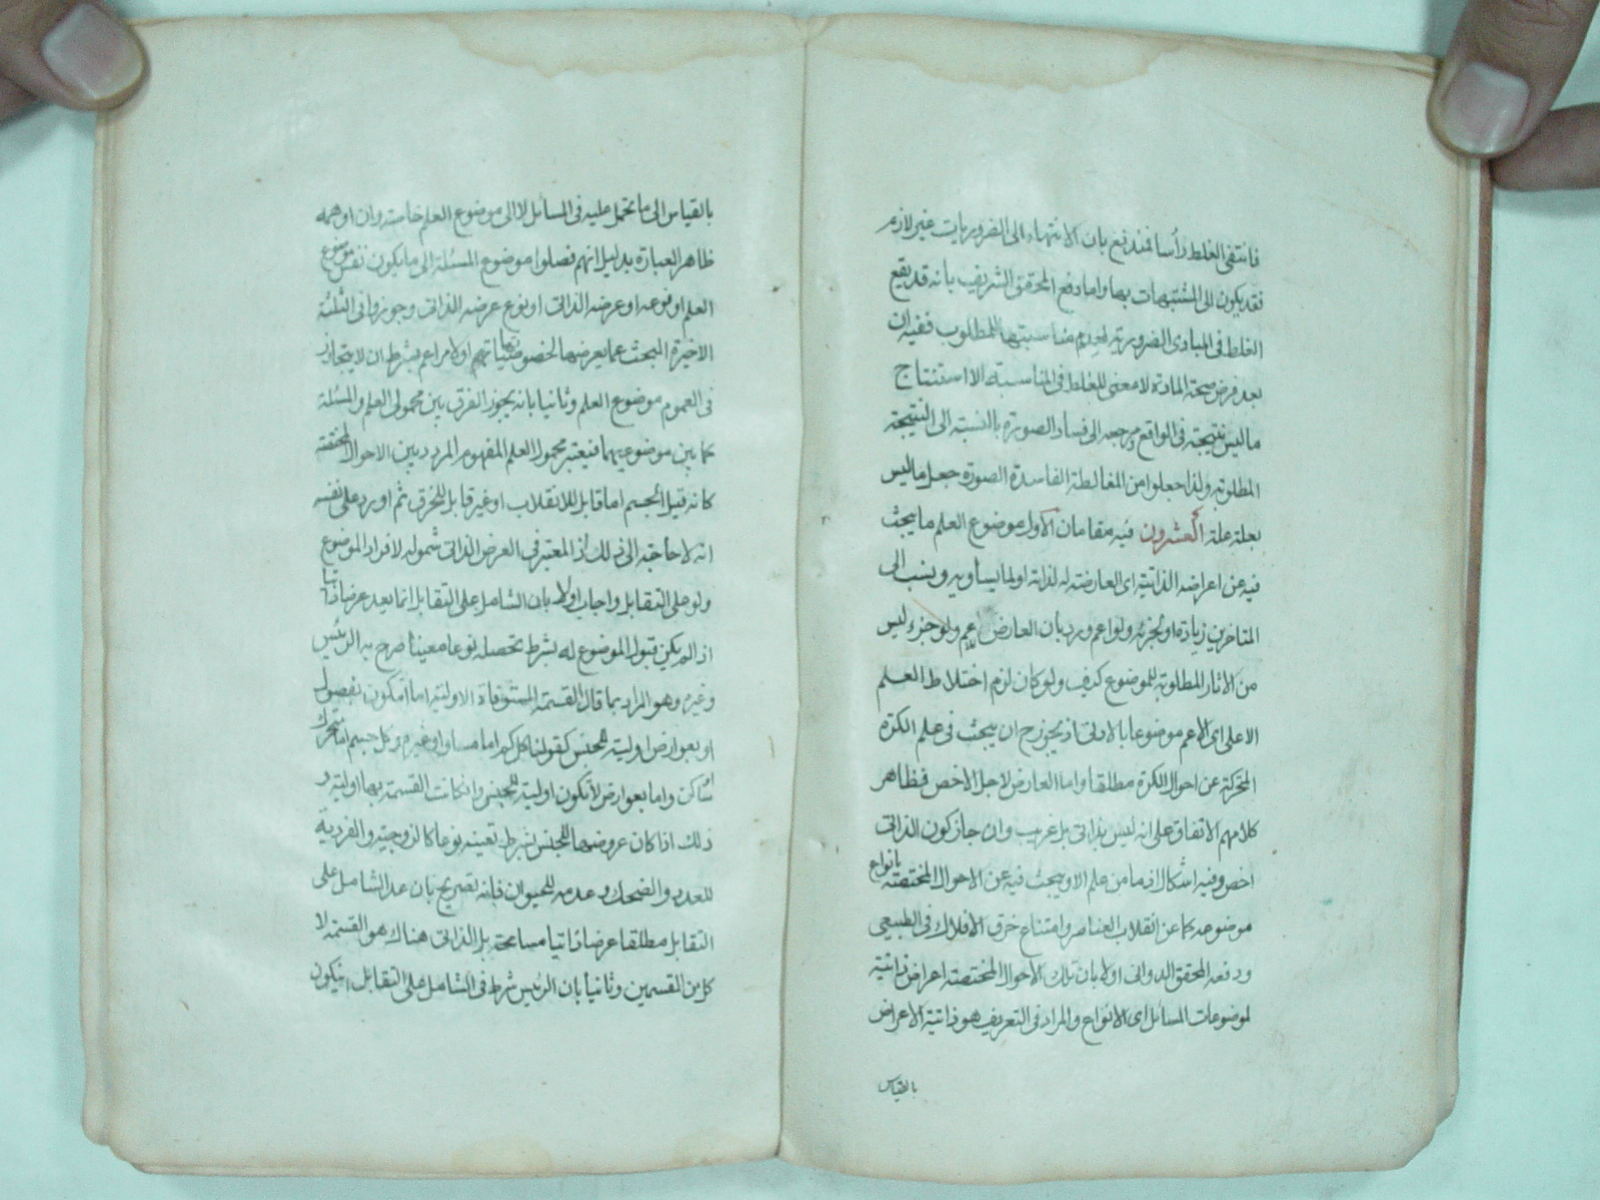 فانتفى الغلط رأسا فمندفع بان الانتهاء الى الضروريات غير لازم
فقد يكون الى المشتبهات بها واما دفع المحقق الشريف بانه قد يقع
الغلط فى المبادى الضرورية لعدم مناسبتها للمطلوب ففيه ان
بعد فرض صحة المادة لا معنى للغلط فى المناسبة الا استنتاج
ما ليس نتيجة فى الواقع ومرجعه الى فساد الصورة بالنسبة الى النتيجة
المطلوبة ولذا جعلوا من المغالطة الفاسدة الصورة جعل ما ليس
بعلة علة العشرون فيه مقامان الاول موضوع العلم ما يبحث
فيه عن اعراضه الذاتية اى العارضة له لذاته او لما يساويه وينسب الى
المتاخرين زيادة او لجزئه ولو اعم ورد بان العارض للاعم ولو جزء ليس
من الاثار المطلوبة للموضوع كيف ولو كان لزم اختلاط العلم
الاعلى اى الاعم موضوعا بالادنى اذ يجوز ح ان يبحث فى علم الكرة
المتحركة عن احوال الكرة مطلقا واما العارض لاجل الاخص فظاهر
كلامهم الاتفاق على انه ليس بذاتى بل غريب وان جاز كون الذاتى
اخص وفيه اشكال اذ ما من علم الا ويبحث فيه عن الاحوال المختصة بانواع
موضوعه كما عن انقلاب العناصر وامتناع خرق الافلاك فى الطبيعى
ودفعه المحقق الدوانى اولا بان تلك الاحوال المختصة اعراض ذاتية
لموضوعات المسائل اى الانواع والمراد فى التعريف هو ذاتية الاعراض
بالقياس
بالقياس الى ما تحمل عليه فى المسائل لا الى موضوع العلم خاصته وان اوهمه
ظاهر العبارة بدليل انهم فصلوا موضوع المسئلة الى ما يكون نفس موضوع
العلم او نوعه او عرضه الذاتى او نوع عرضه الذاتى وجوزوا فى الثلثة
الاخيرة البحث عما يعرضها لخصوصياتها او لامر اعم بشرط ان لا يتجاوز
فى العموم موضوع العلم وثانيا بانه يجوز الفرق بين محمولى العلم والمسئلة
كما بين موضوعيهما فيعتبر محمول العلم المفهوم المردد بين الاحوال المختصة
كانه قيل الجسم اما قابل للانقلاب او غير قابل للخرق ثم اورد على نفسه
انه لا حاجة الى ذلك اذ المعتبر فى العرض الذاتى شموله لافراد الموضوع
ولو على التقابل واجاب اولا بان الشامل على التقابل انما يعد عرضا ذاتيا
اذا لم يكن قبول الموضوع له بشرط تحصله نوعا معينا صرح به الرئيس
وغيره وهو المراد بما قال القسمة المستوفاة الاولية اما ان تكون بفصول
او بعوارض اولية للجنس كقولنا كل كم اما مساو او غيره وكل جسم اما متحرك
او ساكن واما بعوارض لا تكون اولية للجنس وان كانت القسمة بها اولية و
ذلك اذا كان عروضها للجنس بشرط تعينه نوعا كالزوجية والفردية
للعدد والضحك وعدمه للحيوان فانه تصريح بان عد الشامل على
التقابل مطلقا عرضا ذاتيا مسامحة بل الذاتى هناك هو القسمة لا
كل من القسمين وثانيا بان الرئيس شرط فى الشامل على التقابل ان يكون